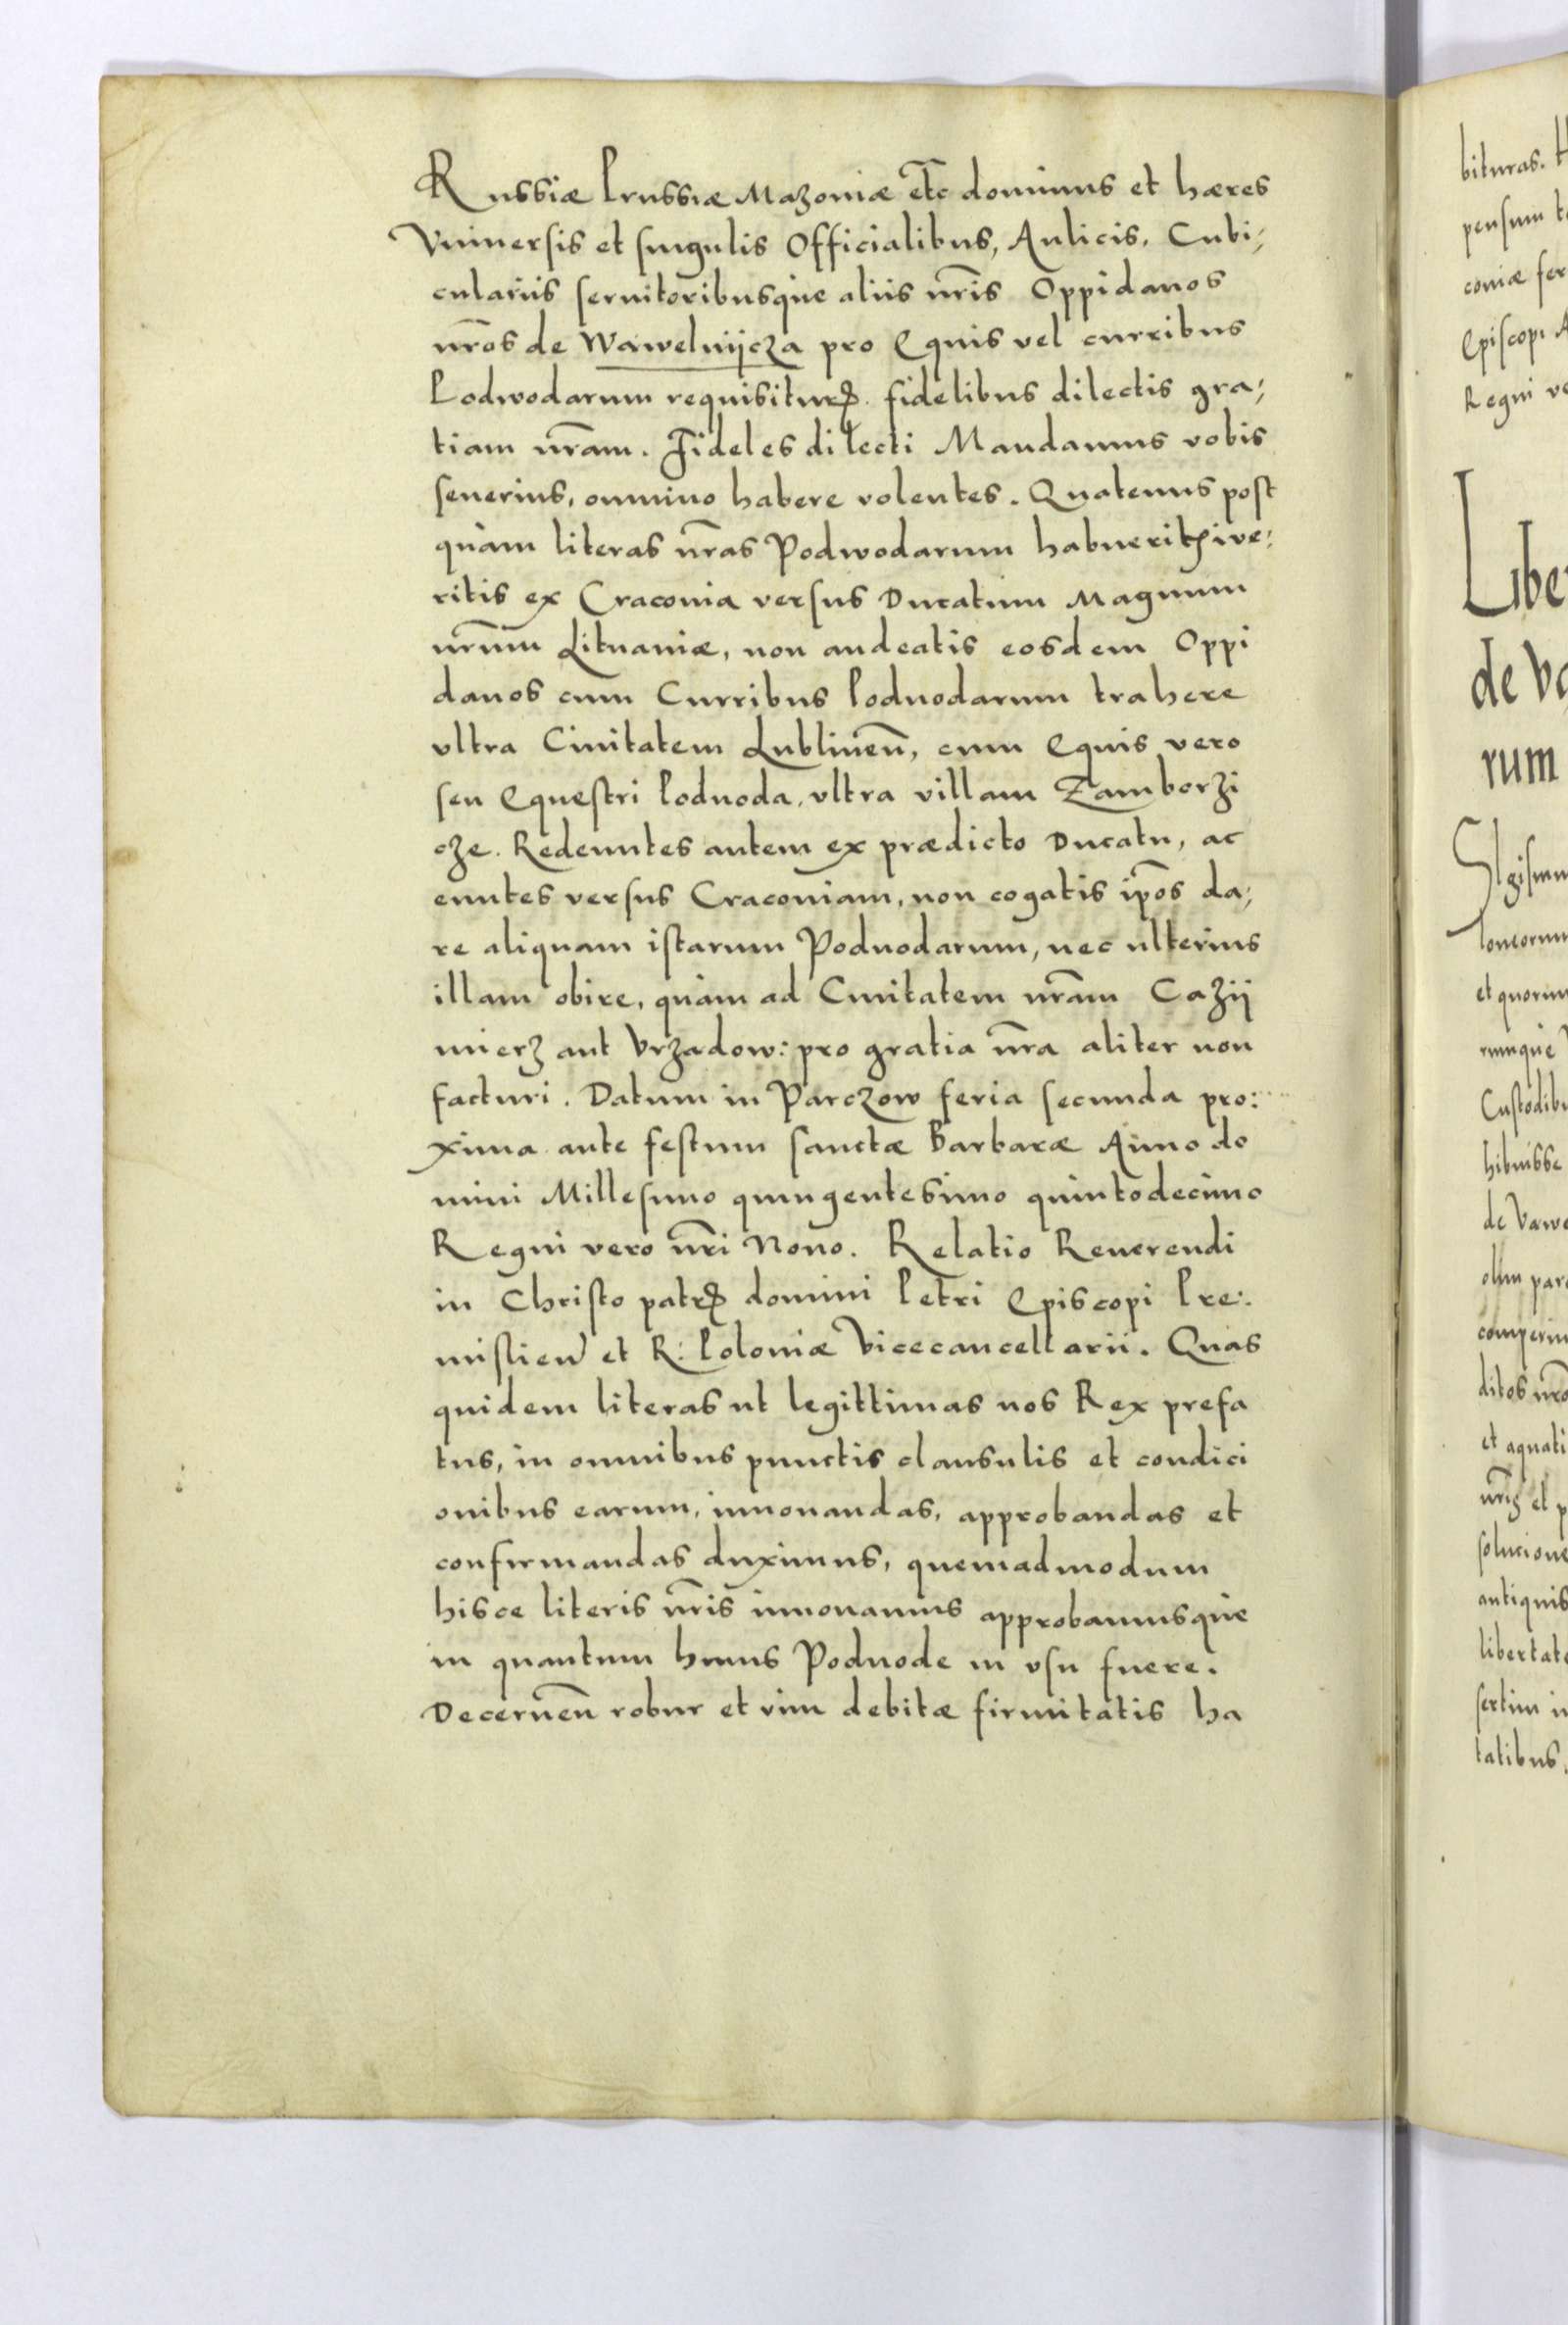 Russiæ Prussiæ Mazoniæ etc̃ dominus et hæres
Vniuersis et singulis Officialibus, Aulicis, Cubi,
culariis seruitoribusque aliis nr̃is Oppidanos
nr̃os de Wawelnijcza pro Equis vel curribus
Podwodarum requisiturꝭ. fidelibus dilectis gra,
tiam nr̃am. Fideles dilecti Mandamus vobis
seuerius, omnino habere volentes. Quatenus post
quàm literas nr̃as Podwodarum habueritis, ive:
ritis ex Craconia versus Ducatum Magnum
nr̃um Lituaniæ, non audeatis eosdem Oppi
danos cum Curribus Poduodarum trahere
vltra Ciuitatem Lublineñ, cum Equis vero
seu Equestri Poduoda, vltra villam Zamborzi
cze. Redeuntes autem ex prædicto Ducatu, ac
euntes versus Craconiam, non cogatis ip̃os da,
re aliquam istarum Poduodarum, nec ulterius
illam obire, quàm ad Ciuitatem nr̃am Cazij
mierz aut Vrzadow: pro gratia nr̃a aliter non
facturi. Datum in Parczow feria secunda pro:
xima ante festum sanctæ Barbaræ Anno do
mini Millesimo quingentesimo quintodecimo
Regni vero nr̃i Nono. Relatio Reuerendi
in Christo patrꝭ domini Petri Episcopi Pre:
mislieñ et R: Poloniæ Vicecancellarii. Quas
quidem literas ut legittimas nos Rex prefa
tus, in omnibus punctis clausulis et condici
onibus earum, innouandas, approbandas et
confirmandas duximus, quemadmodum
hisce literis nr̃is innouamus approbamusque
in quantum huius Poduode in vsu fuere.
Decerneñ robur et vim debitæ firmitatis ha
bituras.
pensum
coniæ
Episcopi
Regni
Liber
de
rum
et
Custodibu
hibuisse
de
olim
ditos
et
et
antiquis
sertim
tatibus,